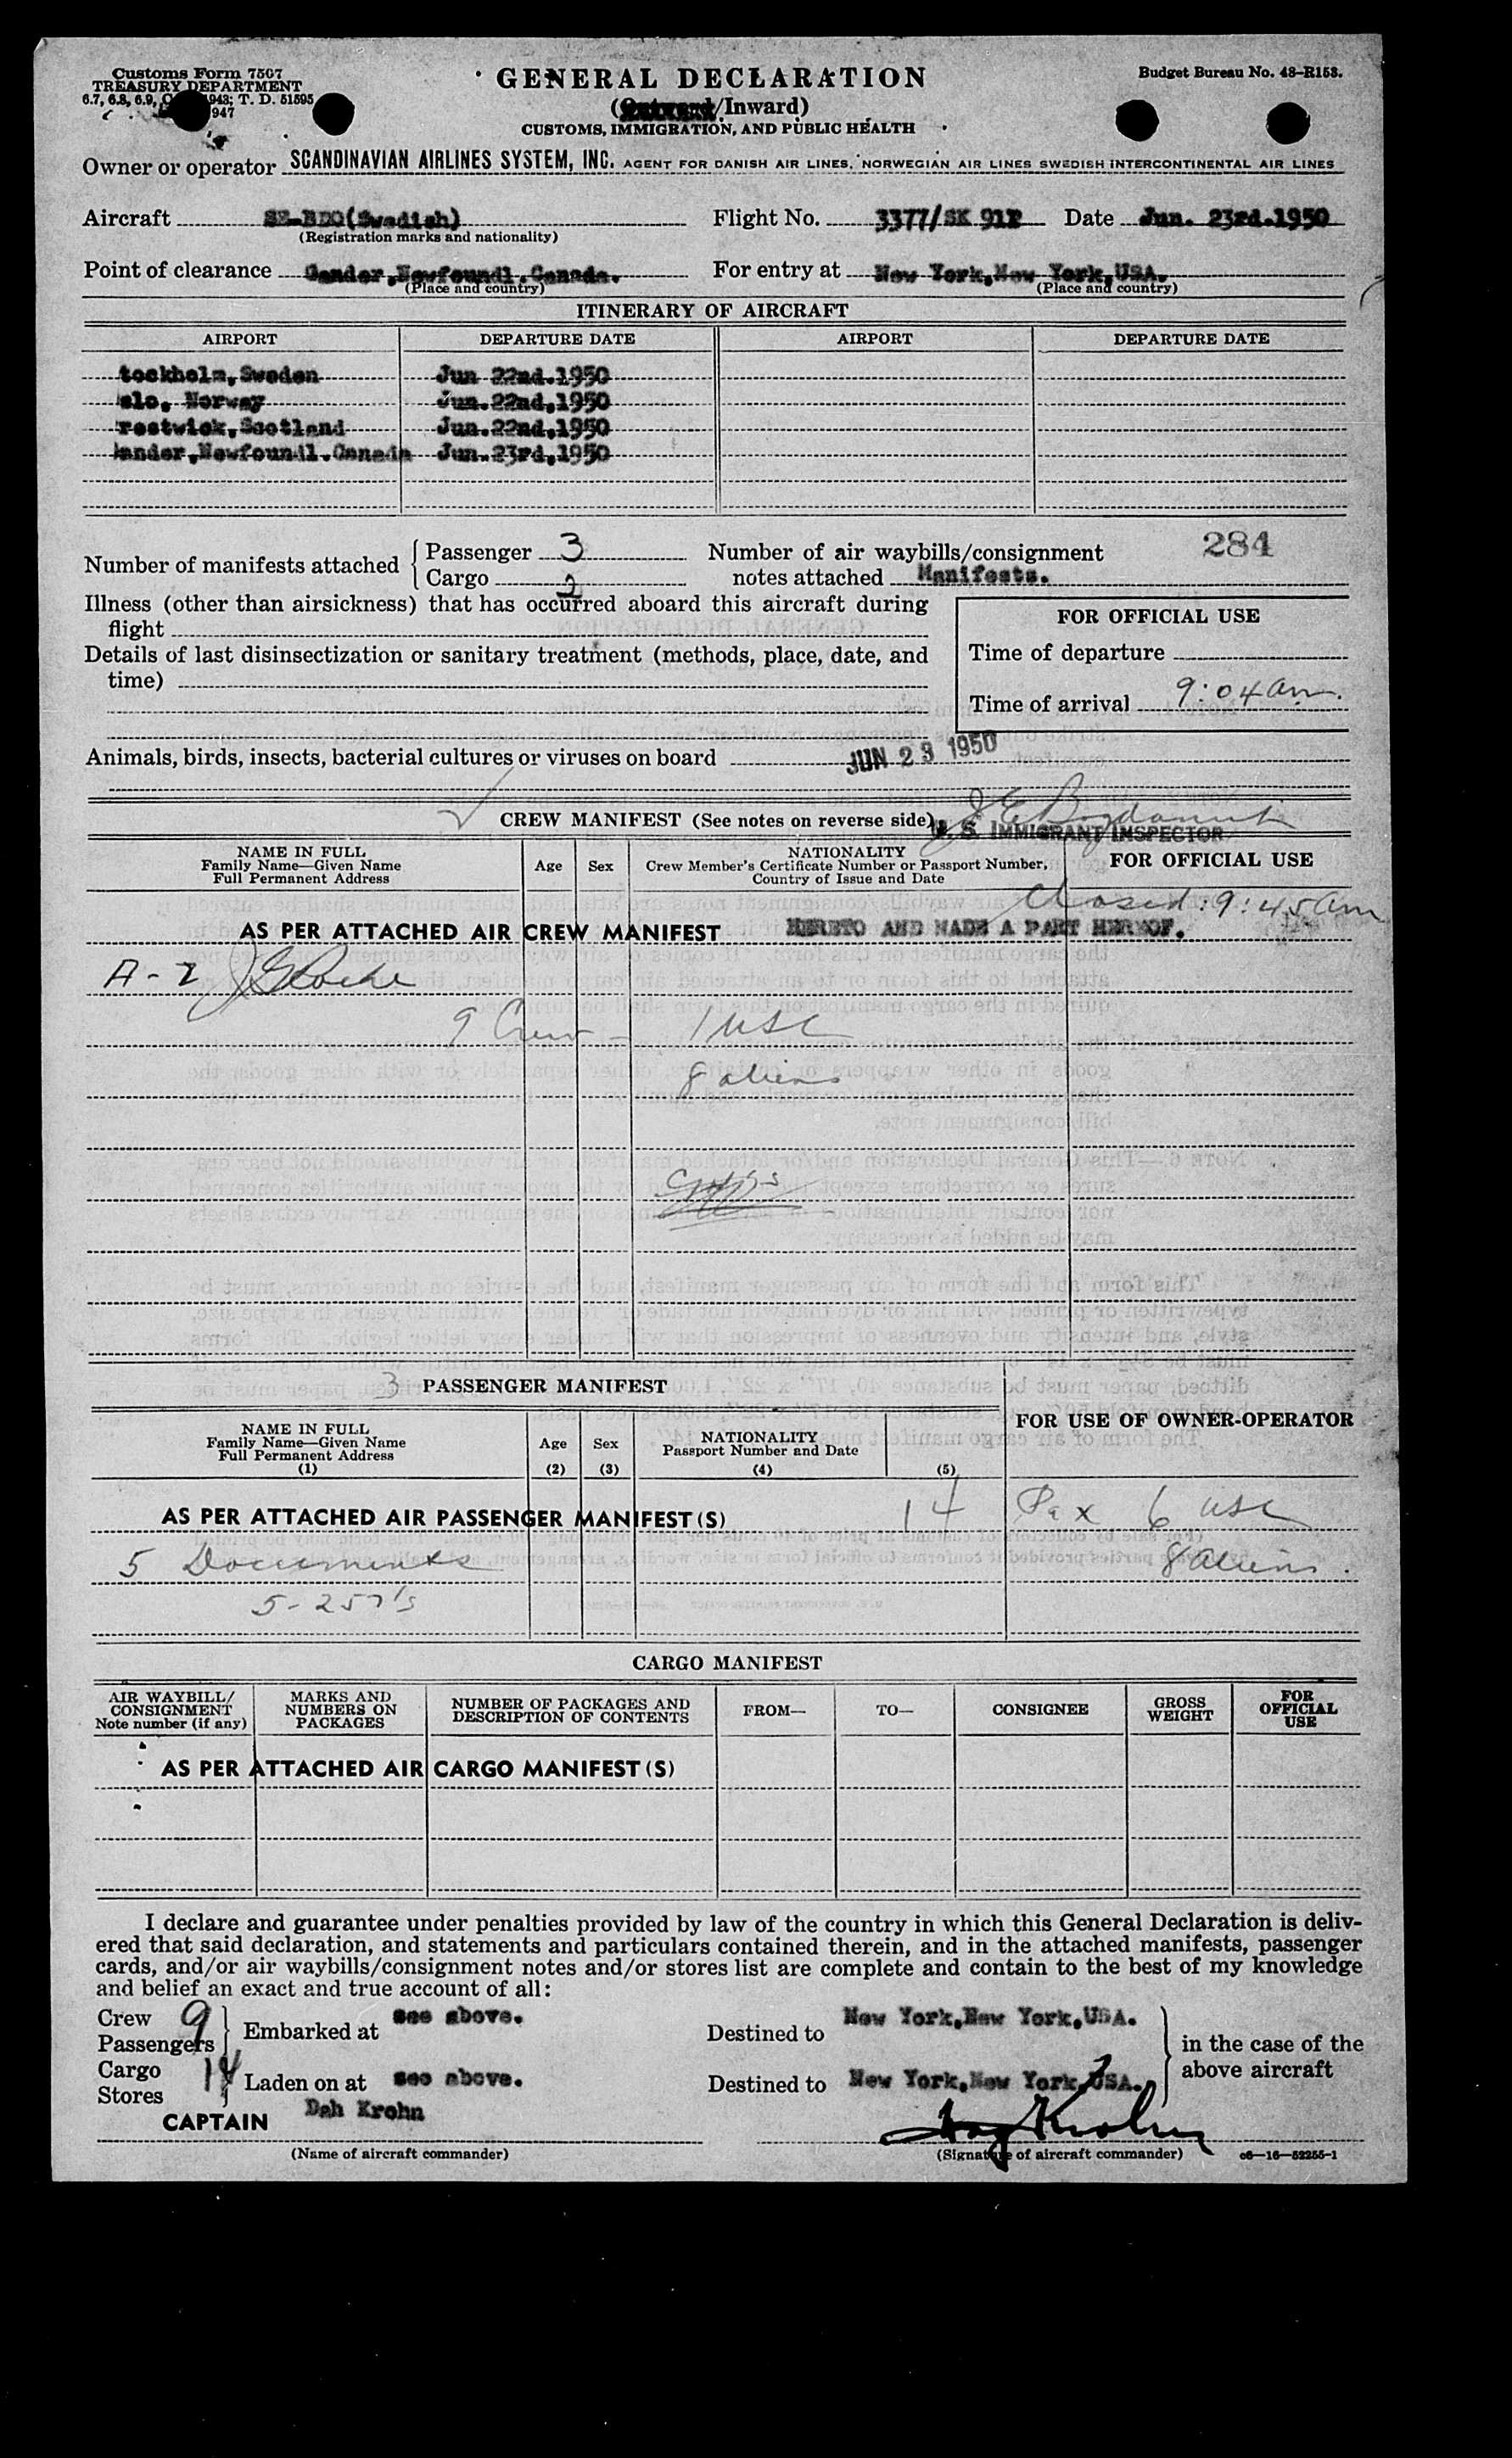 Customs Form 7507
TREASURY DEPARTMENT
6.7, 6.8, 6.9, 1943; T. D. 51595
1947
GENERAL DECLARATION
(Outward/Inward)
CUSTOMS, IMMIGRATION, AND PUBLIC HEALTH
Budget Bureau No. 48-R158.
Owner or operator SCANDINAVIAN AIRLINES SYSTEM, INC. AGENT FOR DANISH AIR LINES, NORWEGIAN AIR LINES SWEDISH INTERCONTINENTAL AIR LINES
Aircraft (Swedish) Flight No. 3377/SK 912 Date Jun. 23rd.1950
(Registration marks and nationality)
Point of clearance Gander,Newfoundl.Canada. For entry at New York,New York,USA.
(Place and country) (Place and country)
ITINERARY OF AIRCRAFT
AIRPORT DEPARTURE DATE AIRPORT DEPARTURE DATE
tockholm,Sweden Jun 22nd.1950
slo, Norway Jun.22nd,1950
restwick,Scotland Jun.22nd,1950
ander,Newfoundl.Canada Jun.23rd,1950
284
Number of manifests attached { Passenger 3 Number of air waybills/consignment
Cargo 2 notes attached Manifests.
Illness (other than airsickness) that has occurred aboard this aircraft during
flight
Details of last disinsectization or sanitary treatment (methods, place, date, and
time)
FOR OFFICIAL USE
Time of departure
Time of arrival 9:04 am.
Animals, birds, insects, bacterial cultures or viruses on board JUN 23 1950
CREW MANIFEST (See notes on reverse side)
U. S. IMMIGRANT INSPECTOR
NAME IN FULL
Family Name—Given Name
Full Permanent Address
Age Sex
NATIONALITY
Crew Member's Certificate Number or Passport Number,
Country of Issue and Date
FOR OFFICIAL USE
Closed: 9:45 am
AS PER ATTACHED AIR CREW MANIFEST HERETO AND MADE A PART HEREOF.
A-2
9 Crew - 1 USC
8 aliens
3 PASSENGER MANIFEST
NAME IN FULL
Family Name—Given Name
Full Permanent Address
(1)
Age
(2)
Sex
(3)
NATIONALITY
Passport Number and Date
(4) (5)
FOR USE OF OWNER-OPERATOR
AS PER ATTACHED AIR PASSENGER MANIFEST(S) 14 Pax 6 USC
5 Documents 8 Aliens.
5-257's
CARGO MANIFEST
AIR WAYBILL/
CONSIGNMENT
Note number (if any)
MARKS AND
NUMBERS ON
PACKAGES
NUMBER OF PACKAGES AND
DESCRIPTION OF CONTENTS
FROM— TO— CONSIGNEE
GROSS
WEIGHT
FOR
OFFICIAL
USE
AS PER ATTACHED AIR CARGO MANIFEST(S)
I declare and guarantee under penalties provided by law of the country in which this General Declaration is deliv-
ered that said declaration, and statements and particulars contained therein, and in the attached manifests, passenger
cards, and/or air waybills/consignment notes and/or stores list are complete and contain to the best of my knowledge
and belief an exact and true account of all:
Crew 9
Passengers } Embarked at see above. Destined to New York,New York,USA.
Cargo 14
Stores } Laden on at see above. Destined to New York,New York,USA.
in the case of the
above aircraft
CAPTAIN Dah Krohn
(Name of aircraft commander) (Signature of aircraft commander) c6—16—52255-1